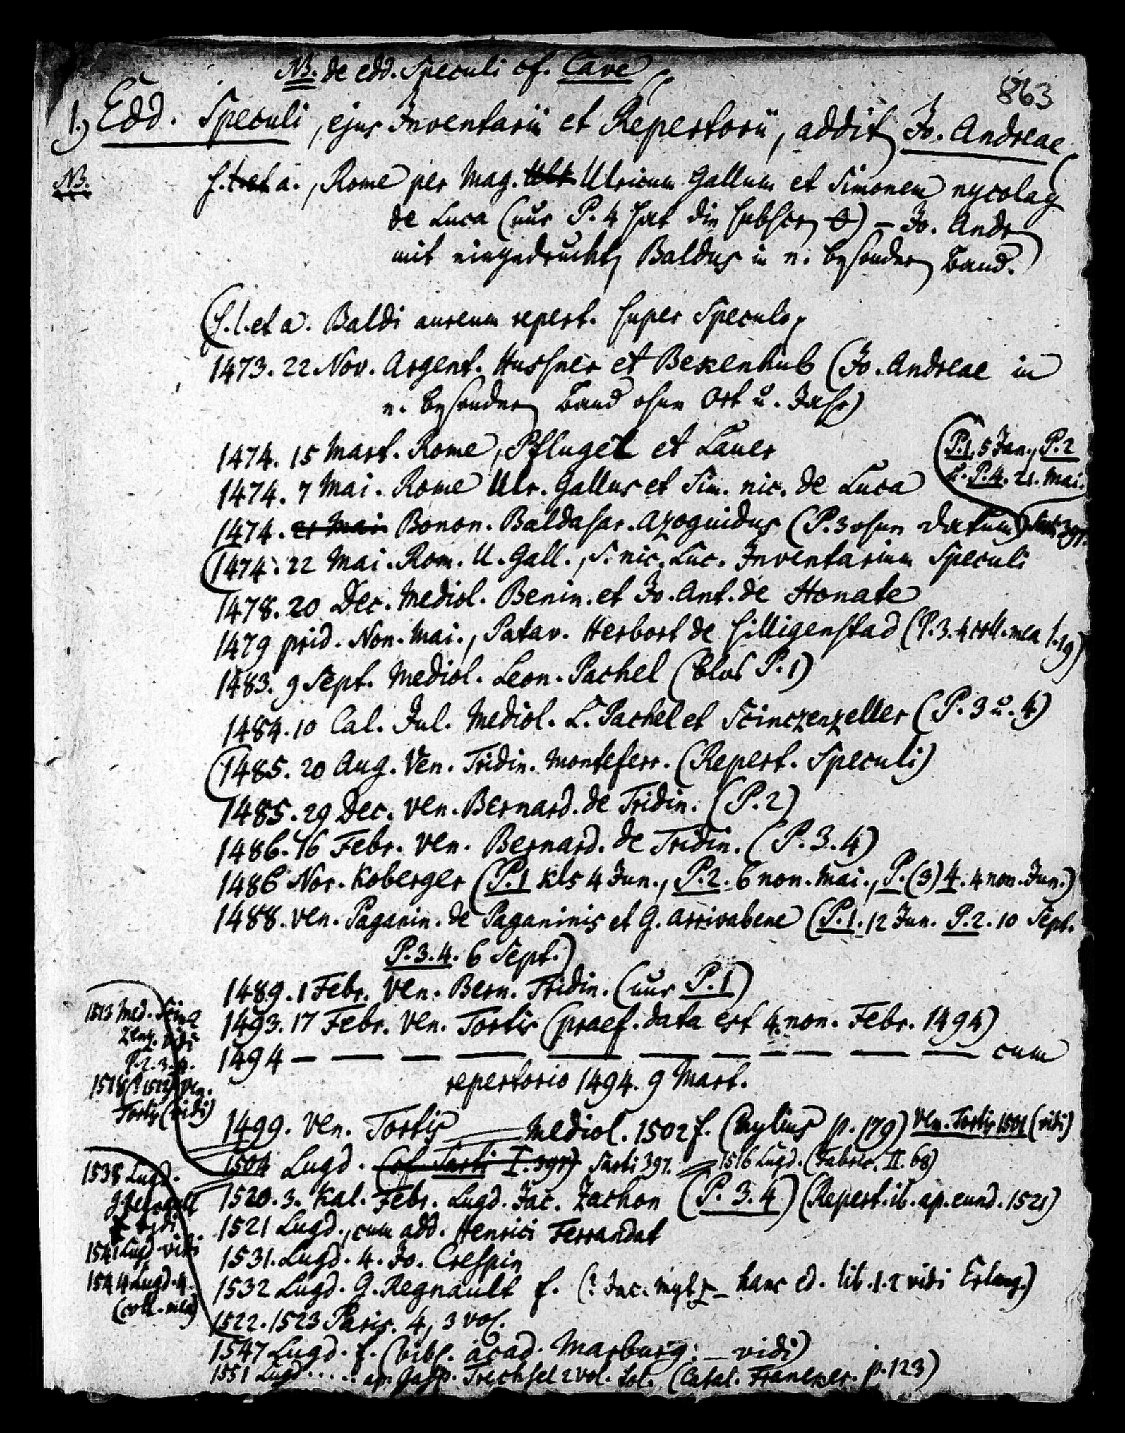 NB. de edd. Speculi cf. Cave
863
1.) Edd. Speculi, ejus Inventarii et Repertorii, addit. Jo. Andreae
NB.
s. l. et a., Rome per Mag. Ulricum Gallum et Simonem nycolay
de Luca (nur P. 4 hat die subscr.) – Jo. Andr.
mit eingedruckt, Baldus in e. besondern Band.
(s. l. et a. Baldi aureum repert. super Speculo,
1473. 22 Nov. Argent. Hussner et Bekenhub (Jo. Andreae in
e. besondern Band ohne Ort u. Jahr)
1474. 15 Mart. Rome, Pflugel et Lauer
(P. 1. 5 Jan., P. 2
P. 4. 21. Mai.
1474. 7 Mai. Rome Ulr. Gallus et Sim. nic. de Luca
1474. 21 Mai. Bonon. Baldasar. Azoguidus (P. 3 ohne Datum)
(1474. 22 Mai. Rom. U. Gall., S. nic. Luc. Inventarium Speculi
1478. 20 Dec. Mediol. Benin. et Jo. Ant. de Honate
1479 prid. Non. Mai., Patav. Herbort de Silligenstad (P. 3. 4 coll. mea 1.19)
1483. 9 Sept. Mediol. Leon. Pachel (blos P. 1)
1484. 10 Cal. Jul. Mediol. L. Pachel et Scinczenzeller (P. 3 u. 4)
(1485. 20 Aug. Ven. Tridin. Monteferr. (Repert. Speculi)
1485. 29 Dec. Ven. Bernard. de Tridin. (P. 2)
1486. 16 Febr. Ven. Bernard. de Tridin. (P. 3. 4)
1486 Nor. Koberger (P. 1 Kls 4 Jun., P. 2. 6 non. Mai., P. (3) 4. 4 non. Jun.)
1488. Ven. Paganin. de Paganinis et G. Arrivabene (P. 1. 12 Jun. P. 2. 10 Sept.
P. 3. 4. 6 Sept.)
1489. 1 Febr. Ven. Bern. Tridin. (nur P. 1)
1493. 17 Febr. Ven. Tortis (praef. data est 4. non. Febr. 1494)
1494 — — — — — — — — — — cum
repertorio 1494. 9 Mart.
1513 Med. Scin
zenz. vidi
P. 2. 3. 4.
Tortis (vidi)
1499. Ven. Tortis — Mediol. 1502 f. (Mylius p. 179) Ven. Tortis 1501 (vidi)
1504 Lugd. (cf. Sarti I. 395) Sarti 397. — 1516 Lugd. (Fabric. II. 68)
1538 Lugd.
vidi
1541 Lugd. vidi
1544 Lugd. 4.
(coll. mea)
1520. 3. Kal. Febr. Lugd. Jac. Zachon (P. 3. 4) (Repert. ib. ap. eund. 1521)
1521 Lugd., cum add. Henrici Ferrandat
1531. Lugd. 4. Jo. Crespin
1532 Lugd. G. Regnault f. (? Jac. Myt hanc ed. lib. 1. 2 vidi Erlang.)
1522. 1523 Paris. 4, 3 vol.
1547 Lugd. f. (bibl. acad. Marburg. — vidi)
1551 Lugd. .... ap. Gasp. Trechsel 2 vol. fol. (Catal. Franeker. p. 123)